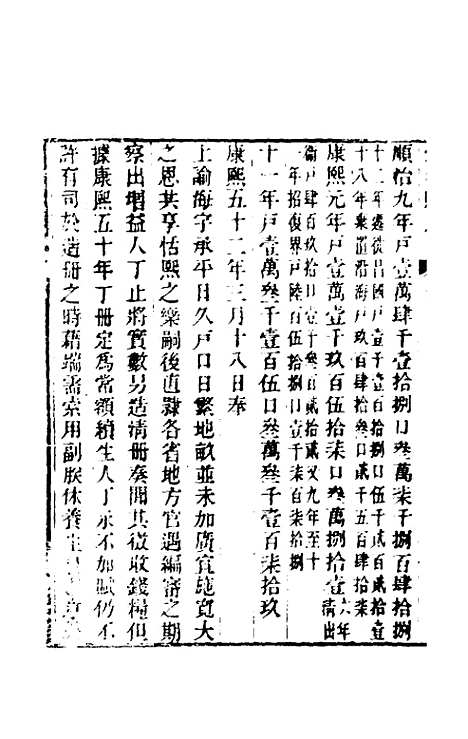 順治九年戸壹萬肆千壹拾捌口叁萬柒千捌百肆拾捌
十二年遷徙出國戸壹千壹百拾捌口伍千貳百貳拾壹
十八年棄置沿海戸玖百肆拾捌口貳千五百肆拾柒
康熙元年戸壹萬壹千玖百伍拾柒口叁萬捌拾壹六年清出
衞戸肆百玖拾口壹千叁百貳拾貳又九年至十
一年招復界戸陸百伍拾捌口壹千柒百柒拾捌
十一年戸壹萬叁千壹百伍口叁萬叁千壹百柒拾玖
康熙五十二年三月十八日奉
上諭海宇承平日久戸口日繁地畝並未加廣宜施寛大
之恩共享恬熙之樂嗣後直隸各省地方官遇編審之期
察出增益人丁止將實數另造清冊奏聞其徵收錢糧但
據康熙五十年丁冊定為常額續生人丁永不加賦仍不
許有司於造冊之時藉端需索用副朕休養